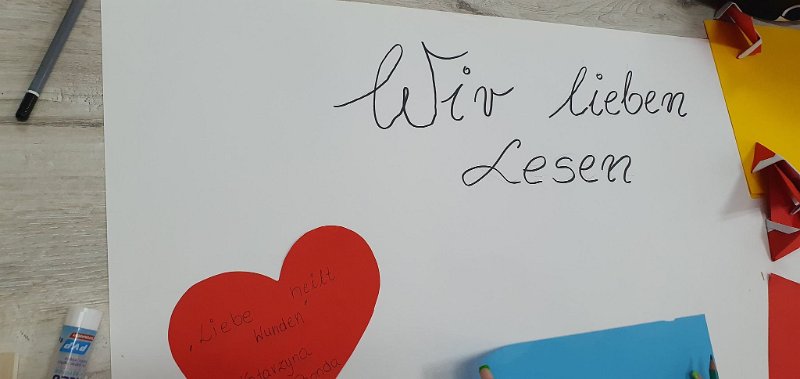 Wir lieben
Lesen
„Liebe heilt
Wunden"
Katarzyna
PVP